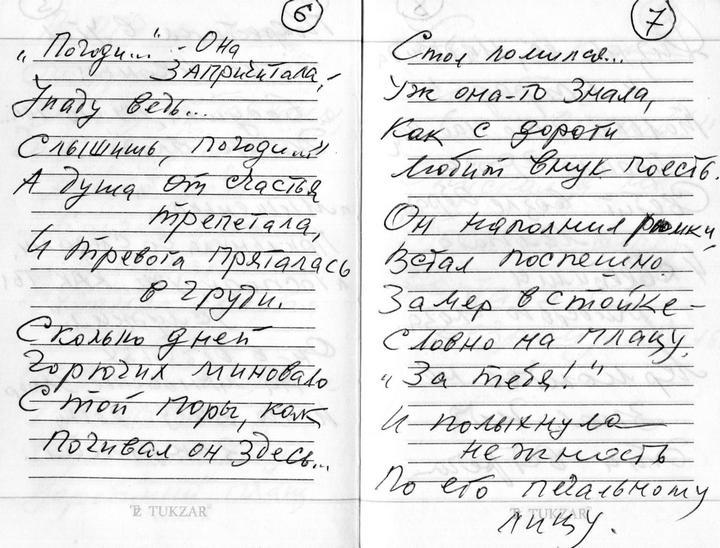 6
„Погоди..." - Она
запричитала, -
Упаду ведь...
Слышишь, погоди..."
А душа от счастья
трепетала,
И тревога пряталась
в груди.
Сколько дней
горючих миновало
С той поры, как
Почивал он здесь...
TUKZAR
7
Стол ломился...
Уж она-то знала,
Как с дороги
любит внук поесть.
Он наполнил рюмки,
Встал поспешно.
Замер в стойке -
Словно на плацу.
„За тебя!"
И полыхнула
нежность
По его печальному
лицу.
TUKZAR